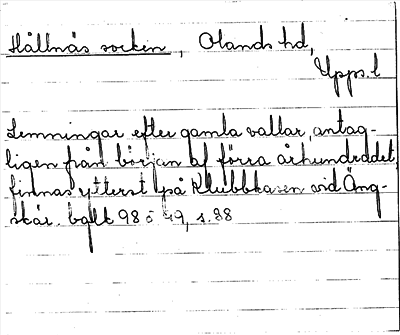 Hållnäs socken, Olands hd,
Upps. l
Lemningar efter gamla vallar, antag-
ligen från början af förra århundradet,
finnas ytterst på Klubbhasen vid Äng-
skär. balt 98 o 49, s. 38